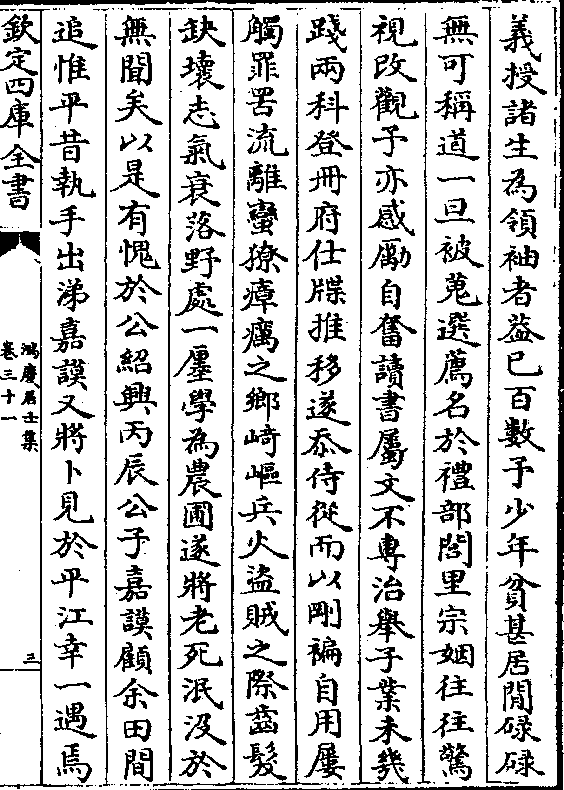 義授諸生為領袖者葢已百數予少年貧甚居閒碌碌
無可稱道一旦被蒐選薦名於禮部閭里宗姻往往驚
視改觀予亦感勵自奮讀書屬文不專治舉子業未幾
踐兩科登冊府仕牒推移遂忝侍從而以剛褊自用屢
觸罪罟流離蠻獠瘴癘之鄉崎嶇兵火盜賊之際齒髮
缺壞志氣衰落野處一廛學為農圃遂將老死泯没於
無聞矣以是有愧於公紹興丙辰公子嘉謨顧余田間
追惟平昔執手出涕嘉謨又將卜見於平江幸一遇焉
欽定四庫全書
鴻慶居士集
卷三十一
三